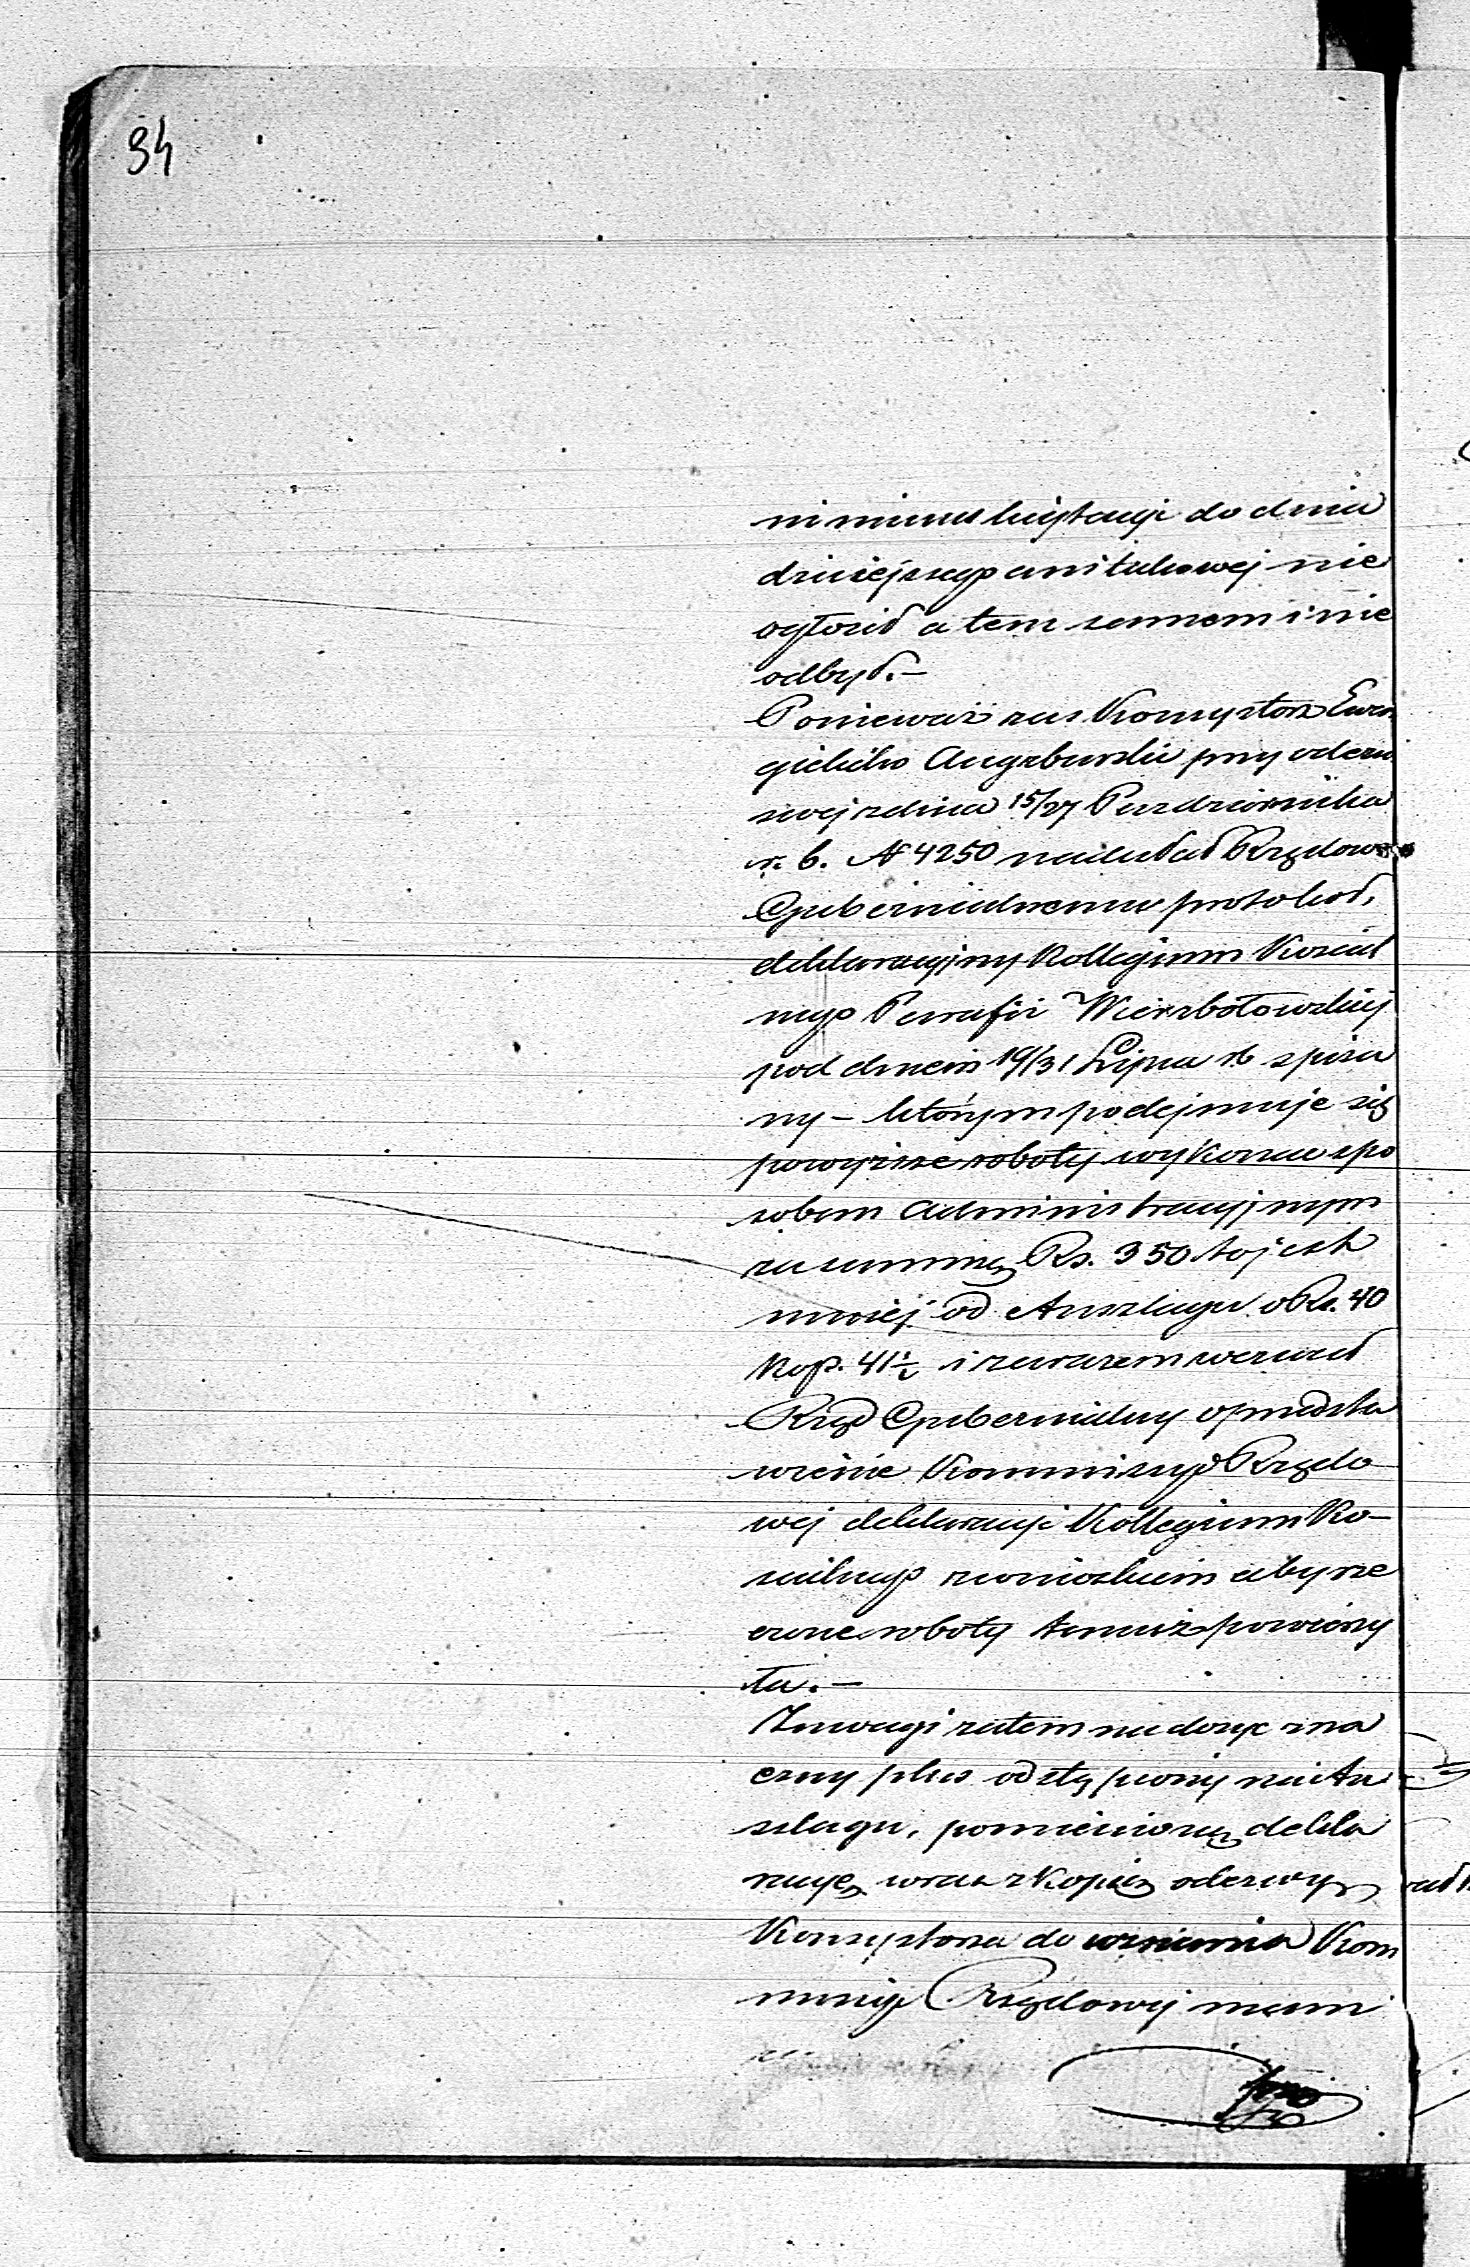 94
ni minus licytacyi do dnia
dzisiejszego ani takowej nie
ogłosił a tem samem i nie
odbył.—
Ponieważ zaś Konsystorz Ewan
gielicko Augsburski przy odezw
swej z dnia 15/27 Października
r. b. N 4250 nadesłał Rządow
Gubernialnemu protokoł,
deklaracyjny Kollegium Kościel
nego Parafii Wierzbołowskiej
pod dniem 19/31 Lipca rb spisa
ny – którym podejmuje się
powyższe roboty wykonać spo
sobem Administracyjnym
za summę Rs. 350 to jest
mniej od Anszlagu o Rs. 40
Kop. 41½ i zarazem wezwał
Rząd Gubernialny o przedsta
wienie Kommissyi Rządo
wej deklaracyi Kollegium Ko–
ścielnego z wnioskiem aby rze
czone roboty temuż powierzy
ła.—
Z uwagi zatem na dosyć zna
czny plus odstąpiony na An
szlagu, pomienioną dekla
racyę wraz z Kopią odezwy
Konsystorza do uznania Kom
missyi Rządowej mam